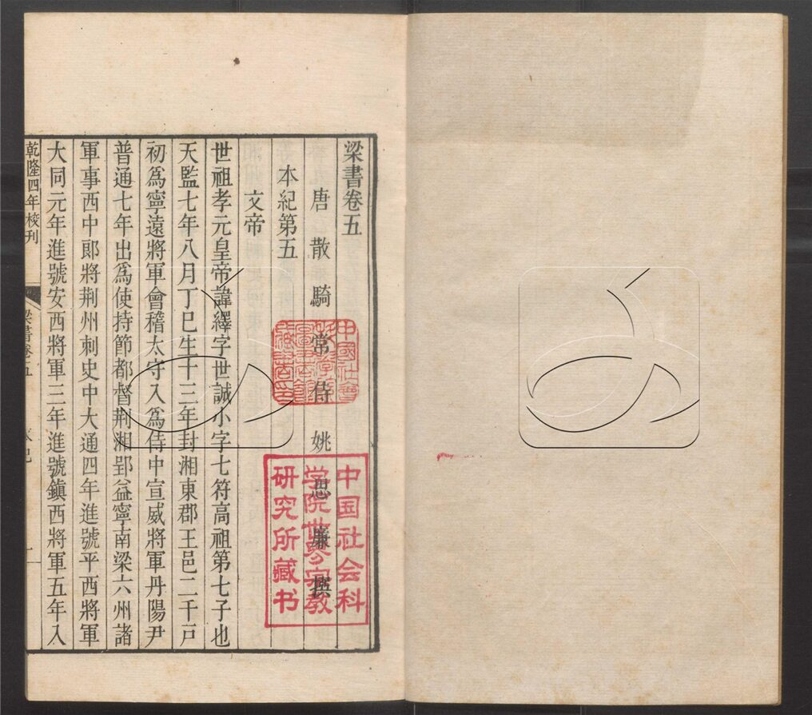 梁書卷五
唐散騎常侍姚思廉撰
本紀第五
文帝
世祖孝元皇帝諱繹字世誠小字七符高祖第七子也
天監七年八月丁巳生十三年封湘東郡王邑二千戸
初爲寧遠將軍會稽太守入爲侍中宣威將軍丹陽尹
普通七年出爲使持節都督荆湘郢益寧南梁六州諸
軍事西中郞將荆州刺史中大通四年進號平西將軍
大同元年進號安西將軍三年進號鎮西將軍五年入
乾隆四年校刊
梁書卷五
本紀
一
中国社会科
学院世界宗教
研究所藏书